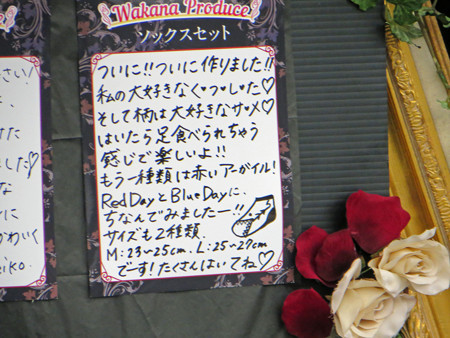 Wakana Produce
ソックスセット
ついに!!ついに作りました!!
私の大好きなく・つ・し・た♡
そして柄は大好きなサ・メ♡
はいたら足食べられちゃう
感じで楽しいよ!!
もう一種類は赤いアーガイル!
Red DayとBlue Dayに、
ちなんでみましたー!!
サイズも2種類.
M:23~25cm. L:25~27cm
でーす!たくさんはいてね♡
さい!
た♡
な
に
わいく
iko.